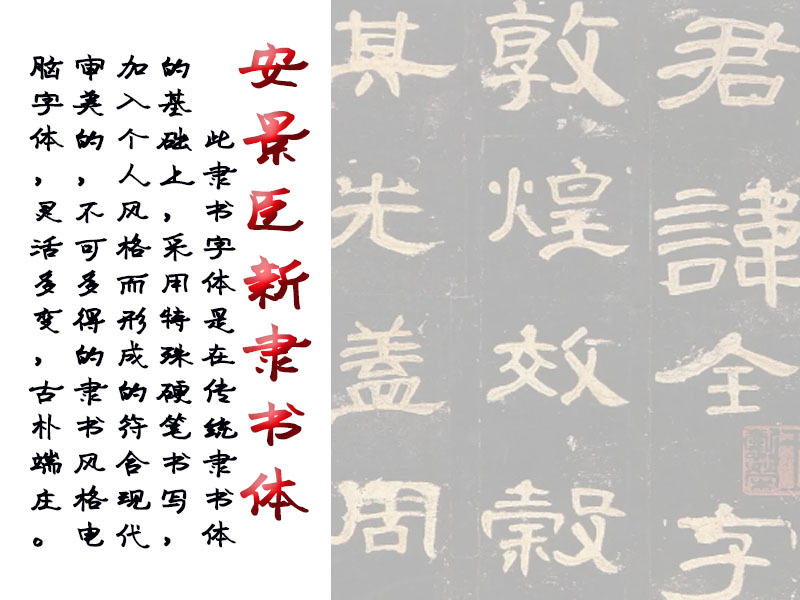 君諱全字
敦煌效穀
其先盖周
安景臣新隶书体
此隶书字体是在传统隶书体
的基础上，采用特殊硬笔书写，
加入个人风格而形成的符合现代
审美的，不可多得的隶书风格电
脑字体，灵活多变，古朴端庄。